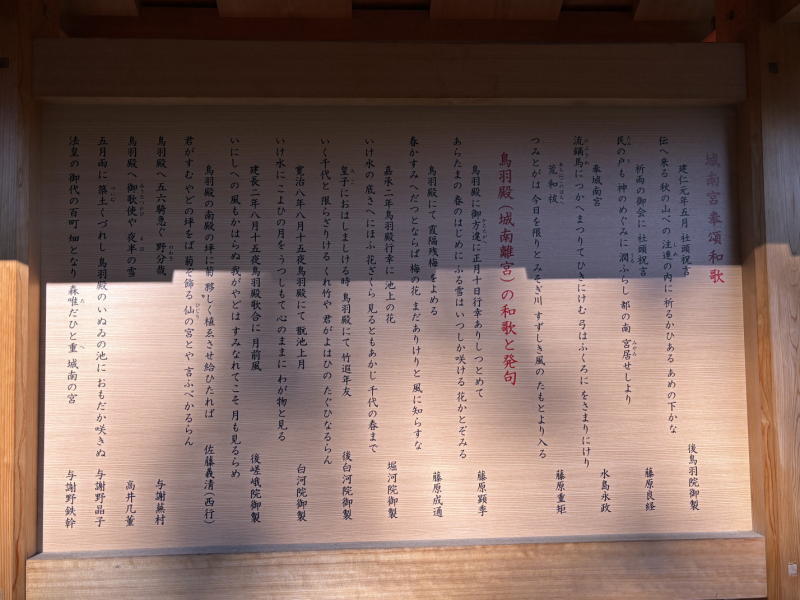 城南宮奉頌和歌
建仁元年五月 社頭祝言
伝へ来る 秋の山べの 注連の内に 祈るかひある あめの下かな
後鳥羽院御製
祈雨の御会に 社頭祝言
民の戸も 神のめぐみに 潤ふらし 都の南 宮居せしより
藤原良経
奉城南宮
流鏑馬に つかへまつりて ひきにけむ 弓はふくろに をさまりにけり
水島永政
荒和祓
つみとがは 今日を限りと みそぎ川 すずしき風の たもとより入る
藤原重矩
鳥羽殿(城南離宮)の和歌と発句
鳥羽殿に御方違に正月十日行幸ありしつとめて
あらたまの 春のはじめに ふる雪は いつしか咲ける 花かとぞみる
藤原顕季
鳥羽殿にて霞隔残梅をよめる
春かすみ へだつとならば 梅の花 まだありけりと 風に知らすな
藤原成通
嘉承二年鳥羽殿行幸に池上の花
いけ水の 底さへにほふ 花ざくら 見るともあかじ 千代の春まで
堀河院御製
皇子におはしましける時 鳥羽殿にて 竹遐年友
いく千代と 限らざりける くれ竹や 君がよはひの たぐひなるらん
後白河院御製
寛治八年八月十五夜鳥羽殿にて 翫池上月
いけ水に こよひの月を うつしもて 心のままに わが物と見る
白河院御製
建長二年八月十五夜鳥羽殿歌合に 月前風
いにしへの 風もかはらぬ 我がやどは すみなれてこそ 月も見るらめ
後嵯峨院御製
鳥羽殿の南殿の坪に菊 夥しく植ゑさせ給ひたれば
君がすむ やどの坪をば 菊ぞ飾る 仙の宮とや 言ふべかるらん
佐藤義清(西行)
鳥羽殿へ 五六騎急ぐ 野分哉
与謝蕪村
鳥羽殿へ 御歌使や 夜半の雪
高井几董
五月雨に 築土くづれし 鳥羽殿の いぬゐの池に おもだか咲きぬ
与謝野晶子
法皇の 御代の百町 畑となり 森唯だひと重 城南の宮
与謝野鉄幹